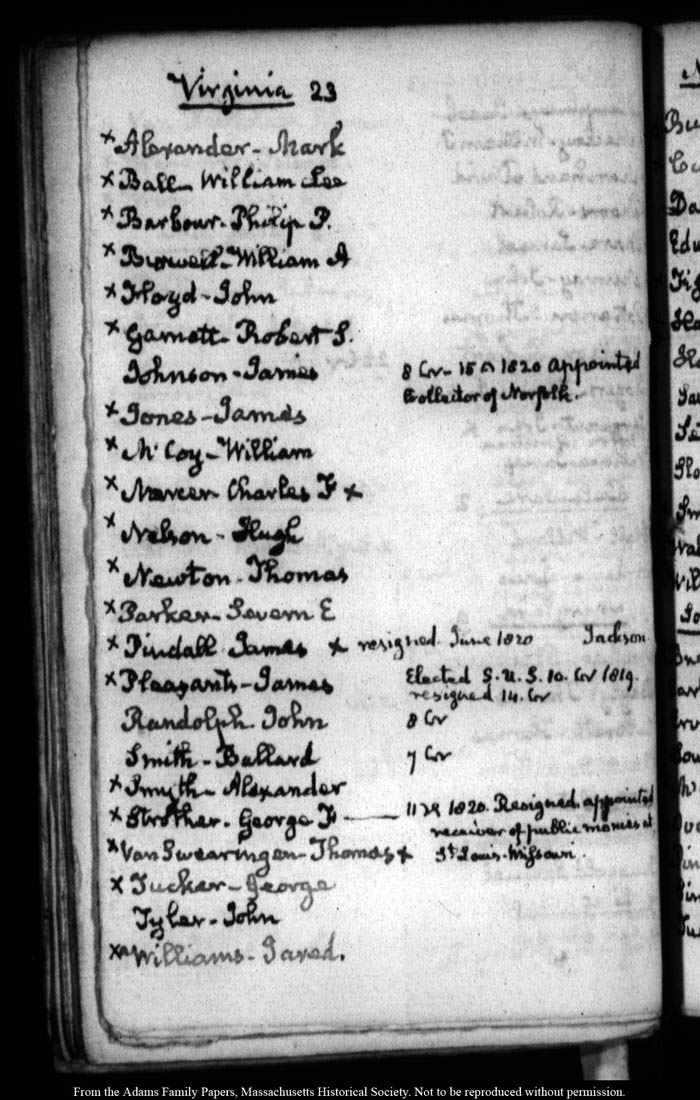 Virginia 23
x Alexander - Mark
x Ball - William Lee
x Barbour - Philip P.
x Burwell - William A
x Floyd - John
x Garnett - Robert S.
Johnson - James 8 Cr - 1820 Appointed
Collector of Norfolk.
x Jones - James
x McCoy - William
x Mercer Charles F x
x Nelson - Hugh
x Newton - Thomas
x Parker - Severn E
x Pindall James x resigned June 1820 Jackson
x Pleasants - James Elected S. U. S. 10. Cr 1819.
resigned 14. Cr
Randolph. John 8 Cr
Smith - Ballard 7 Cr
x Smyth - Alexander
x Strother. George F — 1820. Resigned. appointed
receiver of public monies at
St Louis - Missouri.
x Van Swearingen - Thomas x
x Tucker - George
Tyler - John
x Williams - Jared.
From the Adams Family Papers, Massachusetts Historical Society. Not to be reproduced without permission.